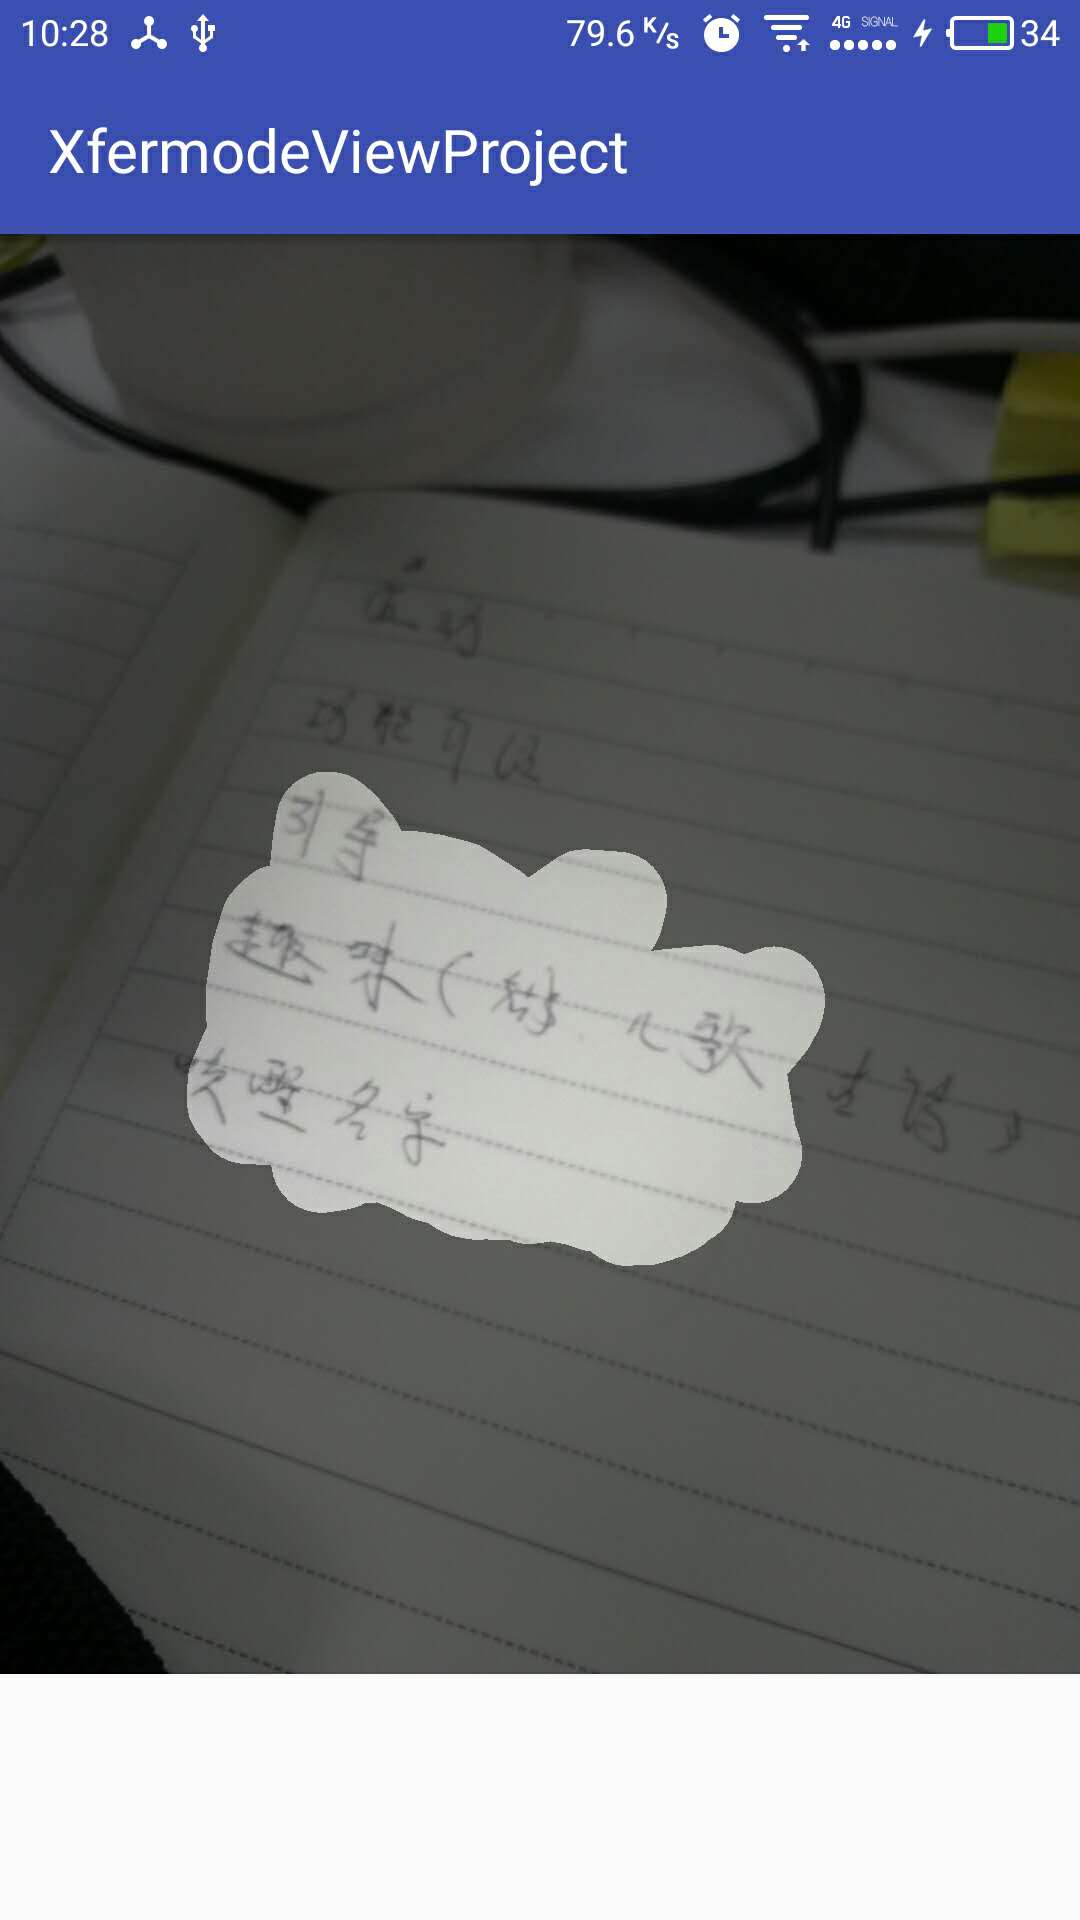 10:28 79.6 K/s 4G SIGNAL 34
XfermodeViewProject
功能
引导
趣味( 儿歌 古诗)
唤醒名字